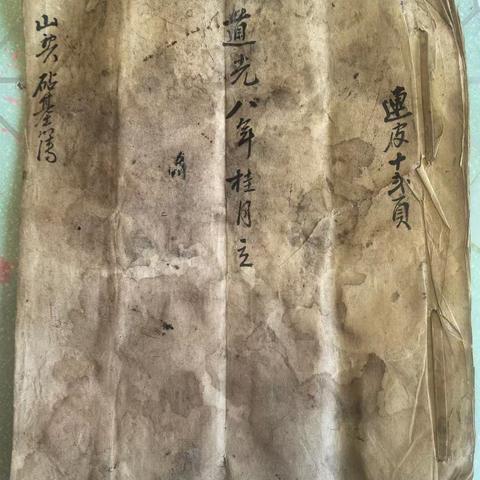 連皮十弍頁
道光八年桂月立
山契砧基簿